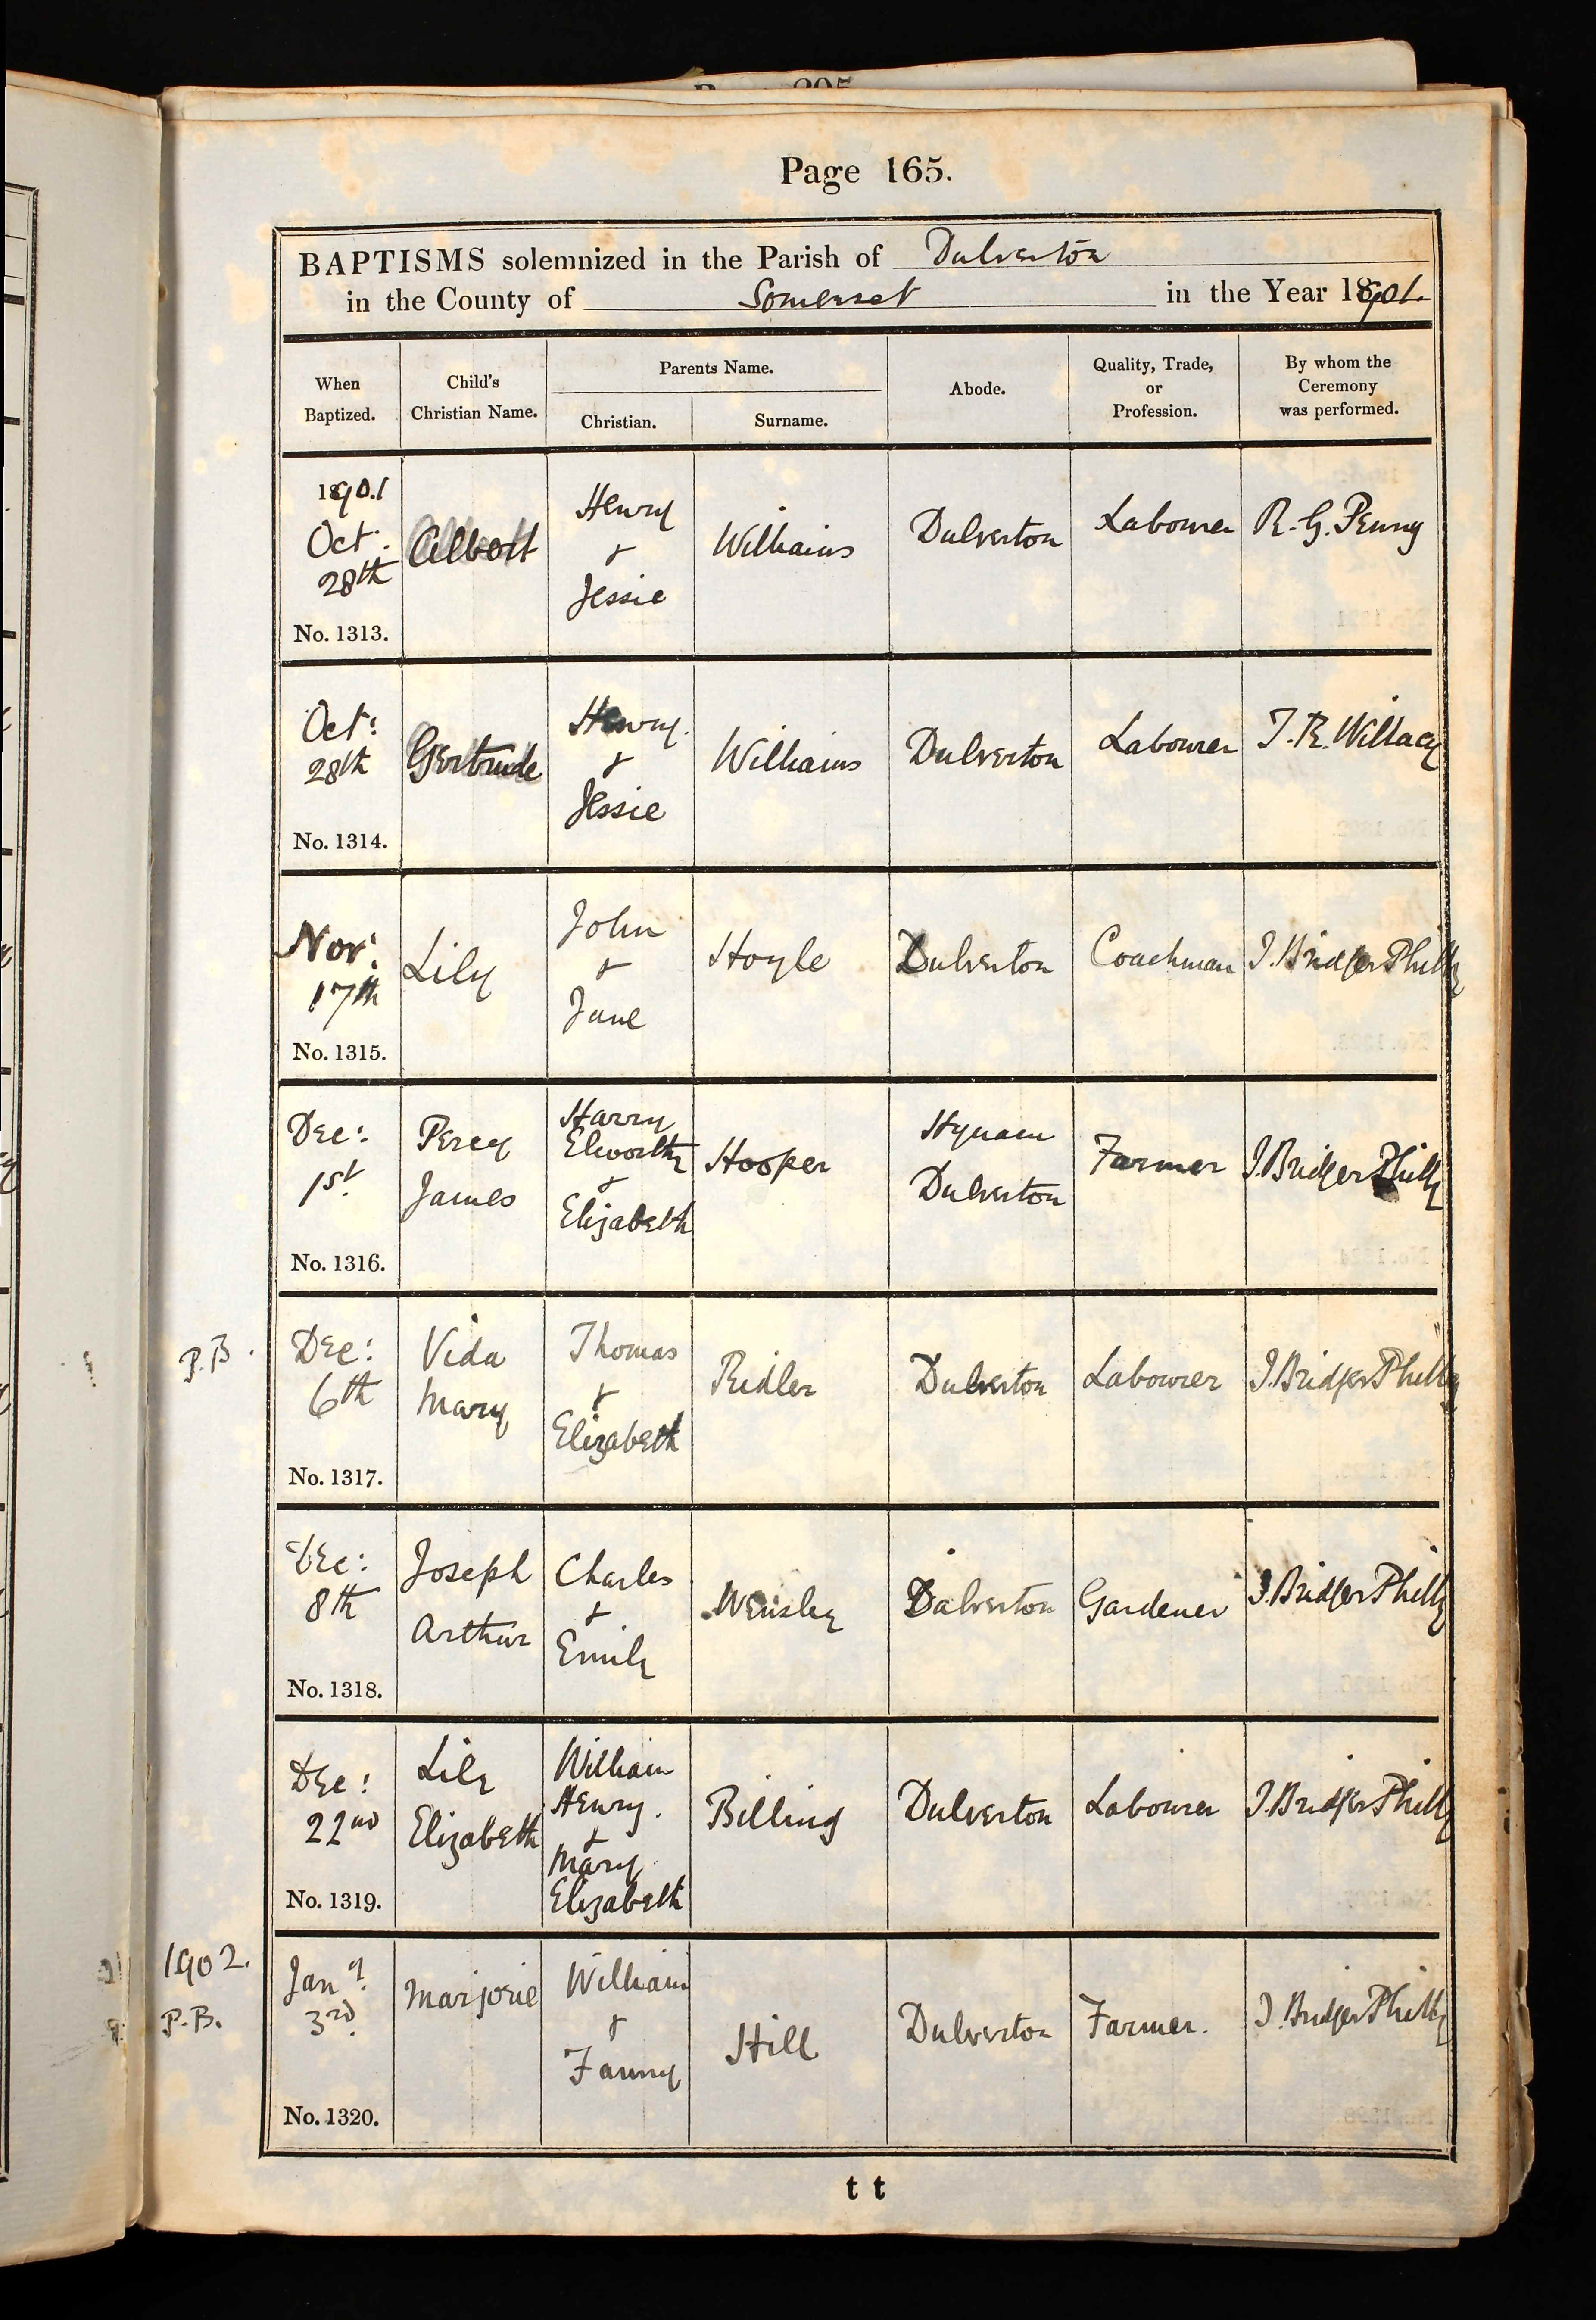 Page 165.
BAPTISMS solemnized in the Parish of Dulverton
in the County of Somerset in the Year 1901.
When Baptized.
Child's Christian Name.
Parents Name.
Christian.
Surname.
Abode.
Quality, Trade, or Profession.
By whom the Ceremony was performed.
1901
Oct:
28th
No. 1313.
Albert
Henry
&
Jessie
Williams
Dulverton
Labourer
R. G. Penny
Oct:
28th
No. 1314.
Gertrude
Henry
&
Jessie
Williams
Dulverton
Labourer
T. R. Willacy
Nov:
17th
No. 1315.
Lily
John
&
Jane
Hoyle
Dulverton
Coachman
J. Bridger Phillp
Dec:
1st
No. 1316.
Percy
James
Harry
Elworthy
&
Elizabeth
Hooper
Hynam
Dulverton
Farmer
J. Bridger Phillp
P.B.
Dec:
6th
No. 1317.
Vida
Mary
Thomas
&
Elizabeth
Ridler
Dulverton
Labourer
J. Bridger Phillp
Dec:
8th
No. 1318.
Joseph
Arthur
Charles
&
Emily
Wensley
Dulverton
Gardener
J. Bridger Phillp
Dec:
22nd
No. 1319.
Lily
Elizabeth
William
Henry.
&
Mary
Elizabeth
Billing
Dulverton
Labourer
J. Bridger Phillp
1902.
P.B.
Jany.
3rd
No. 1320.
Marjorie
William
&
Fanny
Hill
Dulverton
Farmer.
J. Bridger Phillp
t t